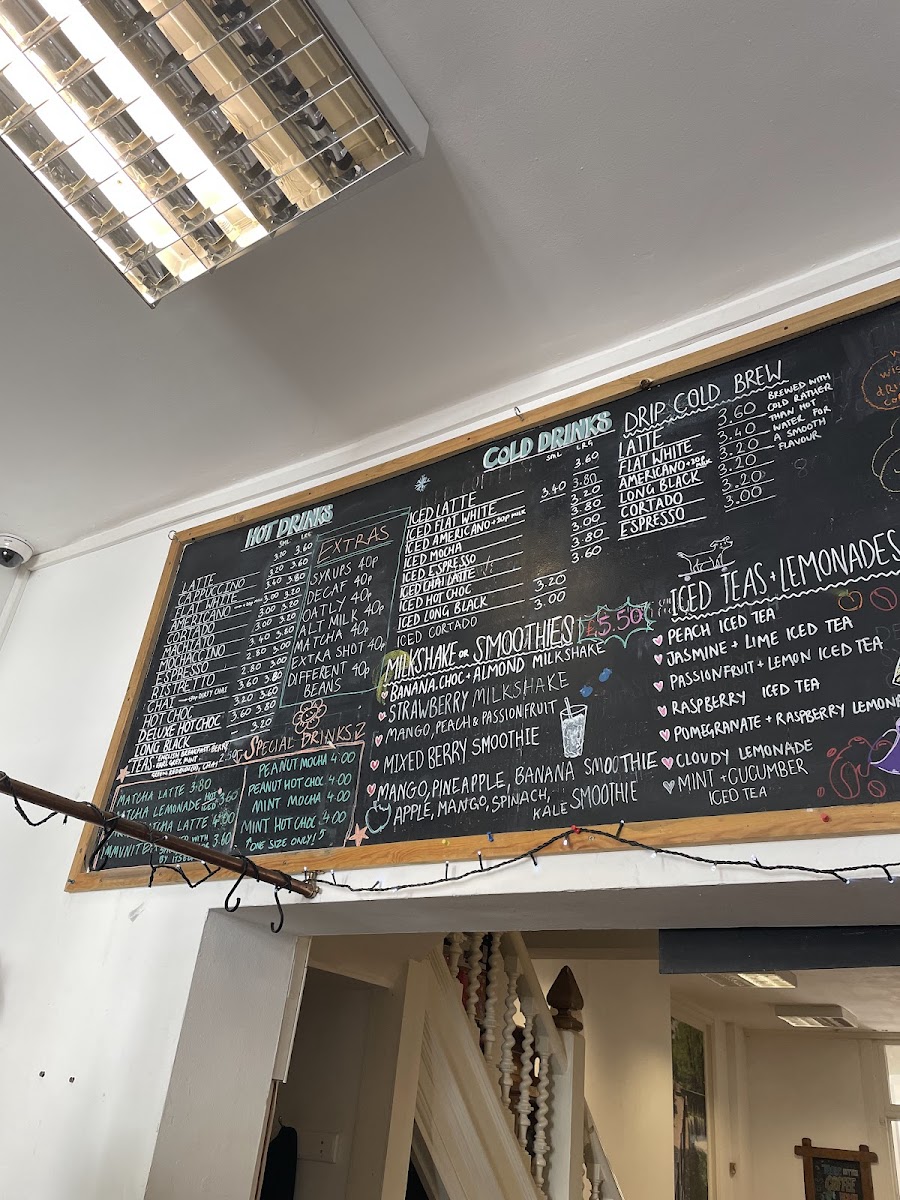 HOT DRINKS
SML LRG
LATTE 3.20 3.60
CAPPUCCINO 3.20 3.60
FLAT WHITE 3.40 3.80
AMERICANO 3.00 3.20
CORTADO 3.00
MACHIATO
MOCHACCINO 3.40 3.80
ESPRESSO
RISTRETTO
CHAI 3.20 3.60
HOT CHOC 3.60 3.80
DELUXE HOT CHOC
LONG BLACK 3.20
TEAS
EXTRAS
SYRUPS 40p
DECAF 40p
OATLY 40p
ALT MILK 40p
MATCHA 40p
EXTRA SHOT 40p
DIFFERENT 40p
BEANS
SPECIAL DRINKS
MATCHA LATTE 3.80
MATCHA LEMONADE 3.60
MATCHA LATTE 4.00
BY ITSELF
PEANUT MOCHA 4.00
PEANUT HOT CHOC 4.00
MINT MOCHA 4.00
MINT HOT CHOC 4.00
*ONE SIZE ONLY!
COLD DRINKS
SML LRG
ICED LATTE 3.60
ICED FLAT WHITE 3.40 3.80
ICED AMERICANO +30p MILK 3.20
ICED MOCHA 3.80
ICED ESPRESSO 3.00
ICED CHAI LATTE 3.80
ICED HOT CHOC 3.60
ICED LONG BLACK 3.20
ICED CORTADO 3.00
MILKSHAKE OR SMOOTHIES £5.50
BANANA, CHOC + ALMOND MILKSHAKE
STRAWBERRY MILKSHAKE
MANGO, PEACH & PASSIONFRUIT
MIXED BERRY SMOOTHIE
MANGO, PINEAPPLE, BANANA SMOOTHIE
APPLE, MANGO, SPINACH,
KALE SMOOTHIE
DRIP COLD BREW
LATTE 3.60
FLAT WHITE 3.40
AMERICANO +30p MILK 3.20
LONG BLACK 3.20
CORTADO 3.20
ESPRESSO 3.00
BREWED WITH
COLD RATHER
THAN HOT
WATER FOR
A SMOOTH
FLAVOUR
ICED TEAS + LEMONADES
PEACH ICED TEA
JASMINE + LIME ICED TEA
PASSIONFRUIT + LEMON ICED TEA
RASPBERRY ICED TEA
POMEGRANATE + RASPBERRY LEMON
CLOUDY LEMONADE
MINT + CUCUMBER
ICED TEA
COFFEE